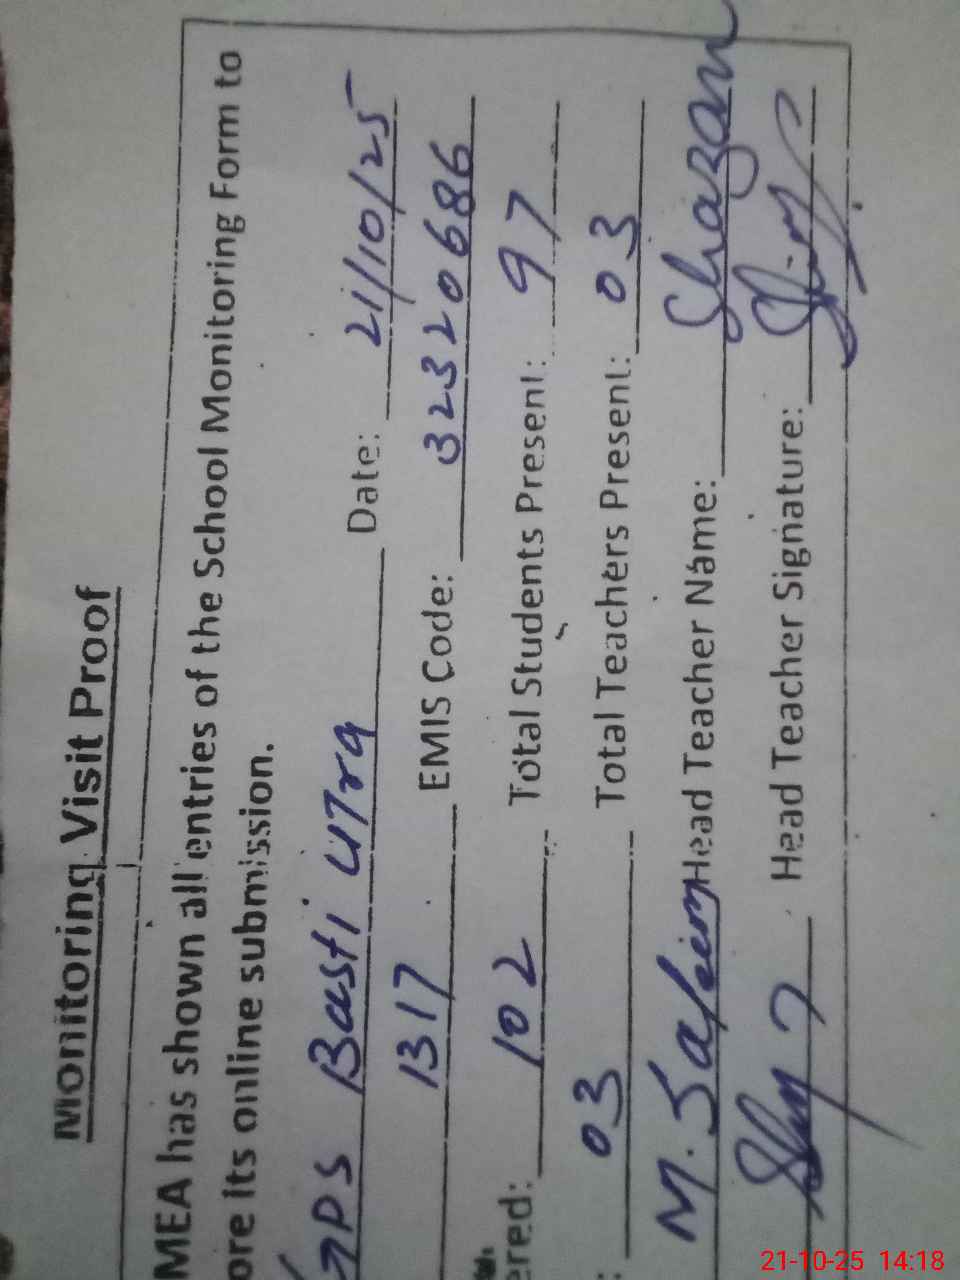 Monitoring Visit Proof
MEA has shown all entries of the School Monitoring Form to
ore its online submission.
GPS Basti Utra Date: 21/10/25
1317 EMIS Code: 32320686
ered: 102 Total Students Present: 97
: 03 Total Teachers Present: 03
M. Saleem Head Teacher Name: Shazam
Head Teacher Signature:
21-10-25 14:18